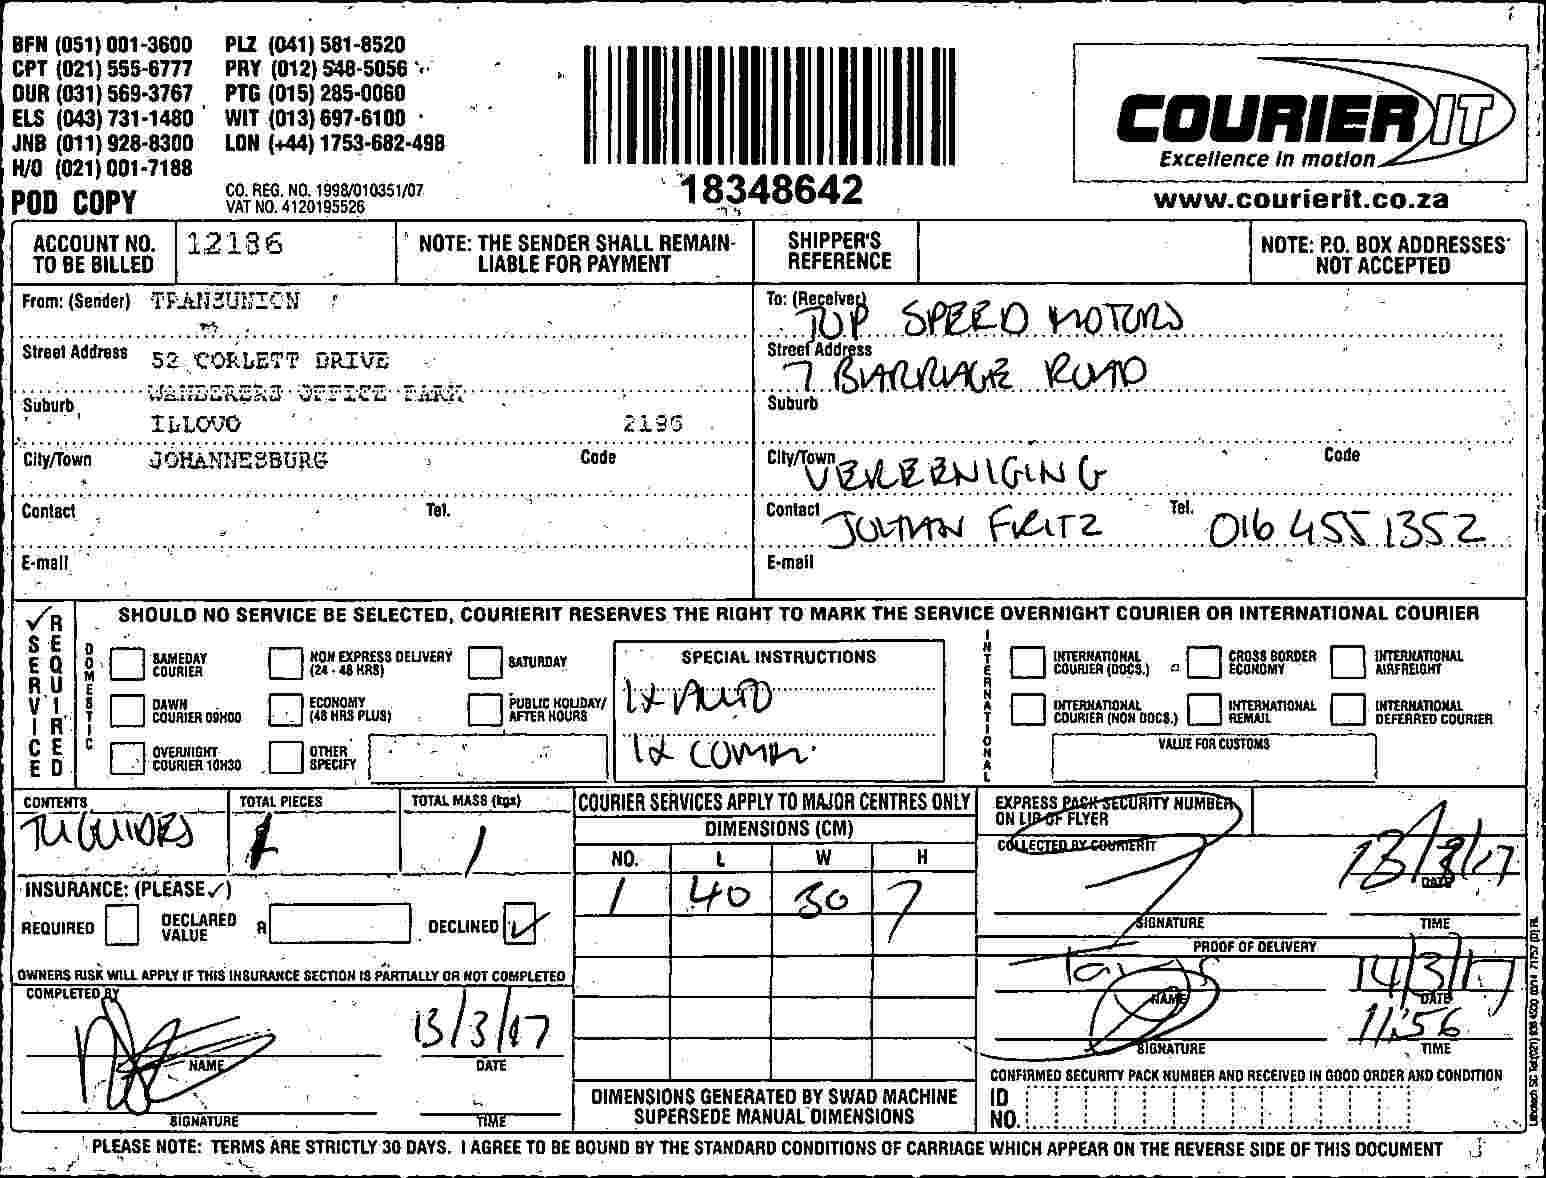 BFN (051) 001-3600 PLZ (041) 581-8520
CPT (021) 555-6777 PRY (012) 548-5056
DUR (031) 569-3767 PTG (015) 285-0060
ELS (043) 731-1480 WIT (013) 697-6100
JNB (011) 928-8300 LON (+44) 1753-682-498
H/O (021) 001-7188
POD COPY
CO. REG. NO. 1998/010351/07
VAT NO. 4120195526
18348642
COURIER IT
Excellence in motion
www.courierit.co.za
ACCOUNT NO. TO BE BILLED 12186
NOTE: THE SENDER SHALL REMAIN LIABLE FOR PAYMENT
SHIPPER'S REFERENCE
NOTE: P.O. BOX ADDRESSES NOT ACCEPTED
From: (Sender) TRANSUNION
Street Address 52 CORLETT DRIVE
WANDERERS OFFICE PARK
Suburb ILLOVO 2196
City/Town JOHANNESBURG Code
Contact Tel.
E-mail
To: (Receiver) TOP SPEED MOTORS
Street Address 7 BARRAGE ROAD
Suburb
City/Town VEREENIGING Code
Contact JULIAN FRITZ Tel. 016 455 1352
E-mail
SERVICE REQUIRED
SHOULD NO SERVICE BE SELECTED, COURIERIT RESERVES THE RIGHT TO MARK THE SERVICE OVERNIGHT COURIER OR INTERNATIONAL COURIER
DOMESTIC
SAMEDAY COURIER
NON EXPRESS DELIVERY (24 - 48 HRS)
SATURDAY
DAWN COURIER 09H00
ECONOMY (48 HRS PLUS)
PUBLIC HOLIDAY/ AFTER HOURS
OVERNIGHT COURIER 10H30
OTHER SPECIFY
SPECIAL INSTRUCTIONS
1x AUTO
1x COMM.
INTERNATIONAL
INTERNATIONAL COURIER (DOCS.)
CROSS BORDER ECONOMY
INTERNATIONAL AIRFREIGHT
INTERNATIONAL COURIER (NON DOCS.)
INTERNATIONAL REMAIL
INTERNATIONAL DEFERRED COURIER
VALUE FOR CUSTOMS
CONTENTS TU GUIDES
TOTAL PIECES 1
TOTAL MASS (kgs) 1
INSURANCE: (PLEASE ✓)
REQUIRED DECLARED VALUE R DECLINED ✓
OWNERS RISK WILL APPLY IF THIS INSURANCE SECTION IS PARTIALLY OR NOT COMPLETED
COMPLETED BY
NAME 13/3/17 DATE
SIGNATURE TIME
COURIER SERVICES APPLY TO MAJOR CENTRES ONLY
DIMENSIONS (CM)
NO. L W H
1 40 30 7
DIMENSIONS GENERATED BY SWAD MACHINE SUPERSEDE MANUAL DIMENSIONS
EXPRESS PACK SECURITY NUMBER ON LIP OF FLYER
COLLECTED BY COURIERIT
13/3/17 DATE
SIGNATURE TIME
PROOF OF DELIVERY
NAME 14/3/17 DATE
SIGNATURE 11:56 TIME
CONFIRMED SECURITY PACK NUMBER AND RECEIVED IN GOOD ORDER AND CONDITION
ID NO.
PLEASE NOTE: TERMS ARE STRICTLY 30 DAYS. I AGREE TO BE BOUND BY THE STANDARD CONDITIONS OF CARRIAGE WHICH APPEAR ON THE REVERSE SIDE OF THIS DOCUMENT